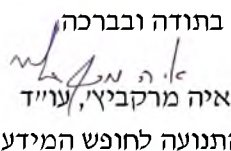 בתודה ובברכה,
איה מרקביץ', עו״ד
התנועה לחופש המידע